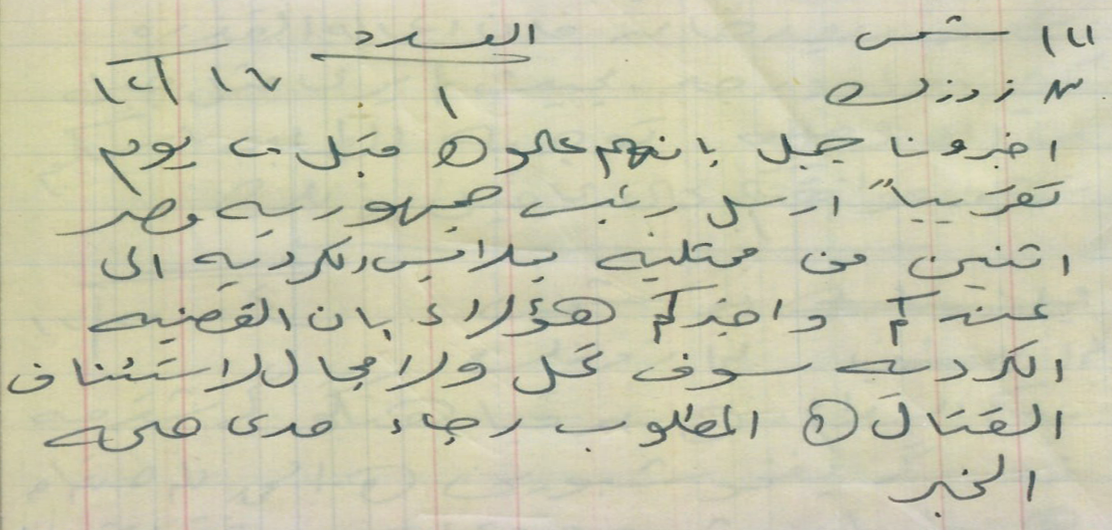 الى / شمس العدد
من / زوزك ١ ١٦ / ١٢
اخبرونا جبل بانهم علموا ⊙ قبل ٢٠ يوم
تقريباً ارسل رئيس جمهوريه مصر
اثنين من ممثليه بملابس الكرديه الى
عندكم واخبركم هؤلاء بان القضيه
الكرديه سوف تحل ولا مجال لاستئناف
القتال ⊙ المطلوب رجاء مدى صحه
الخبر